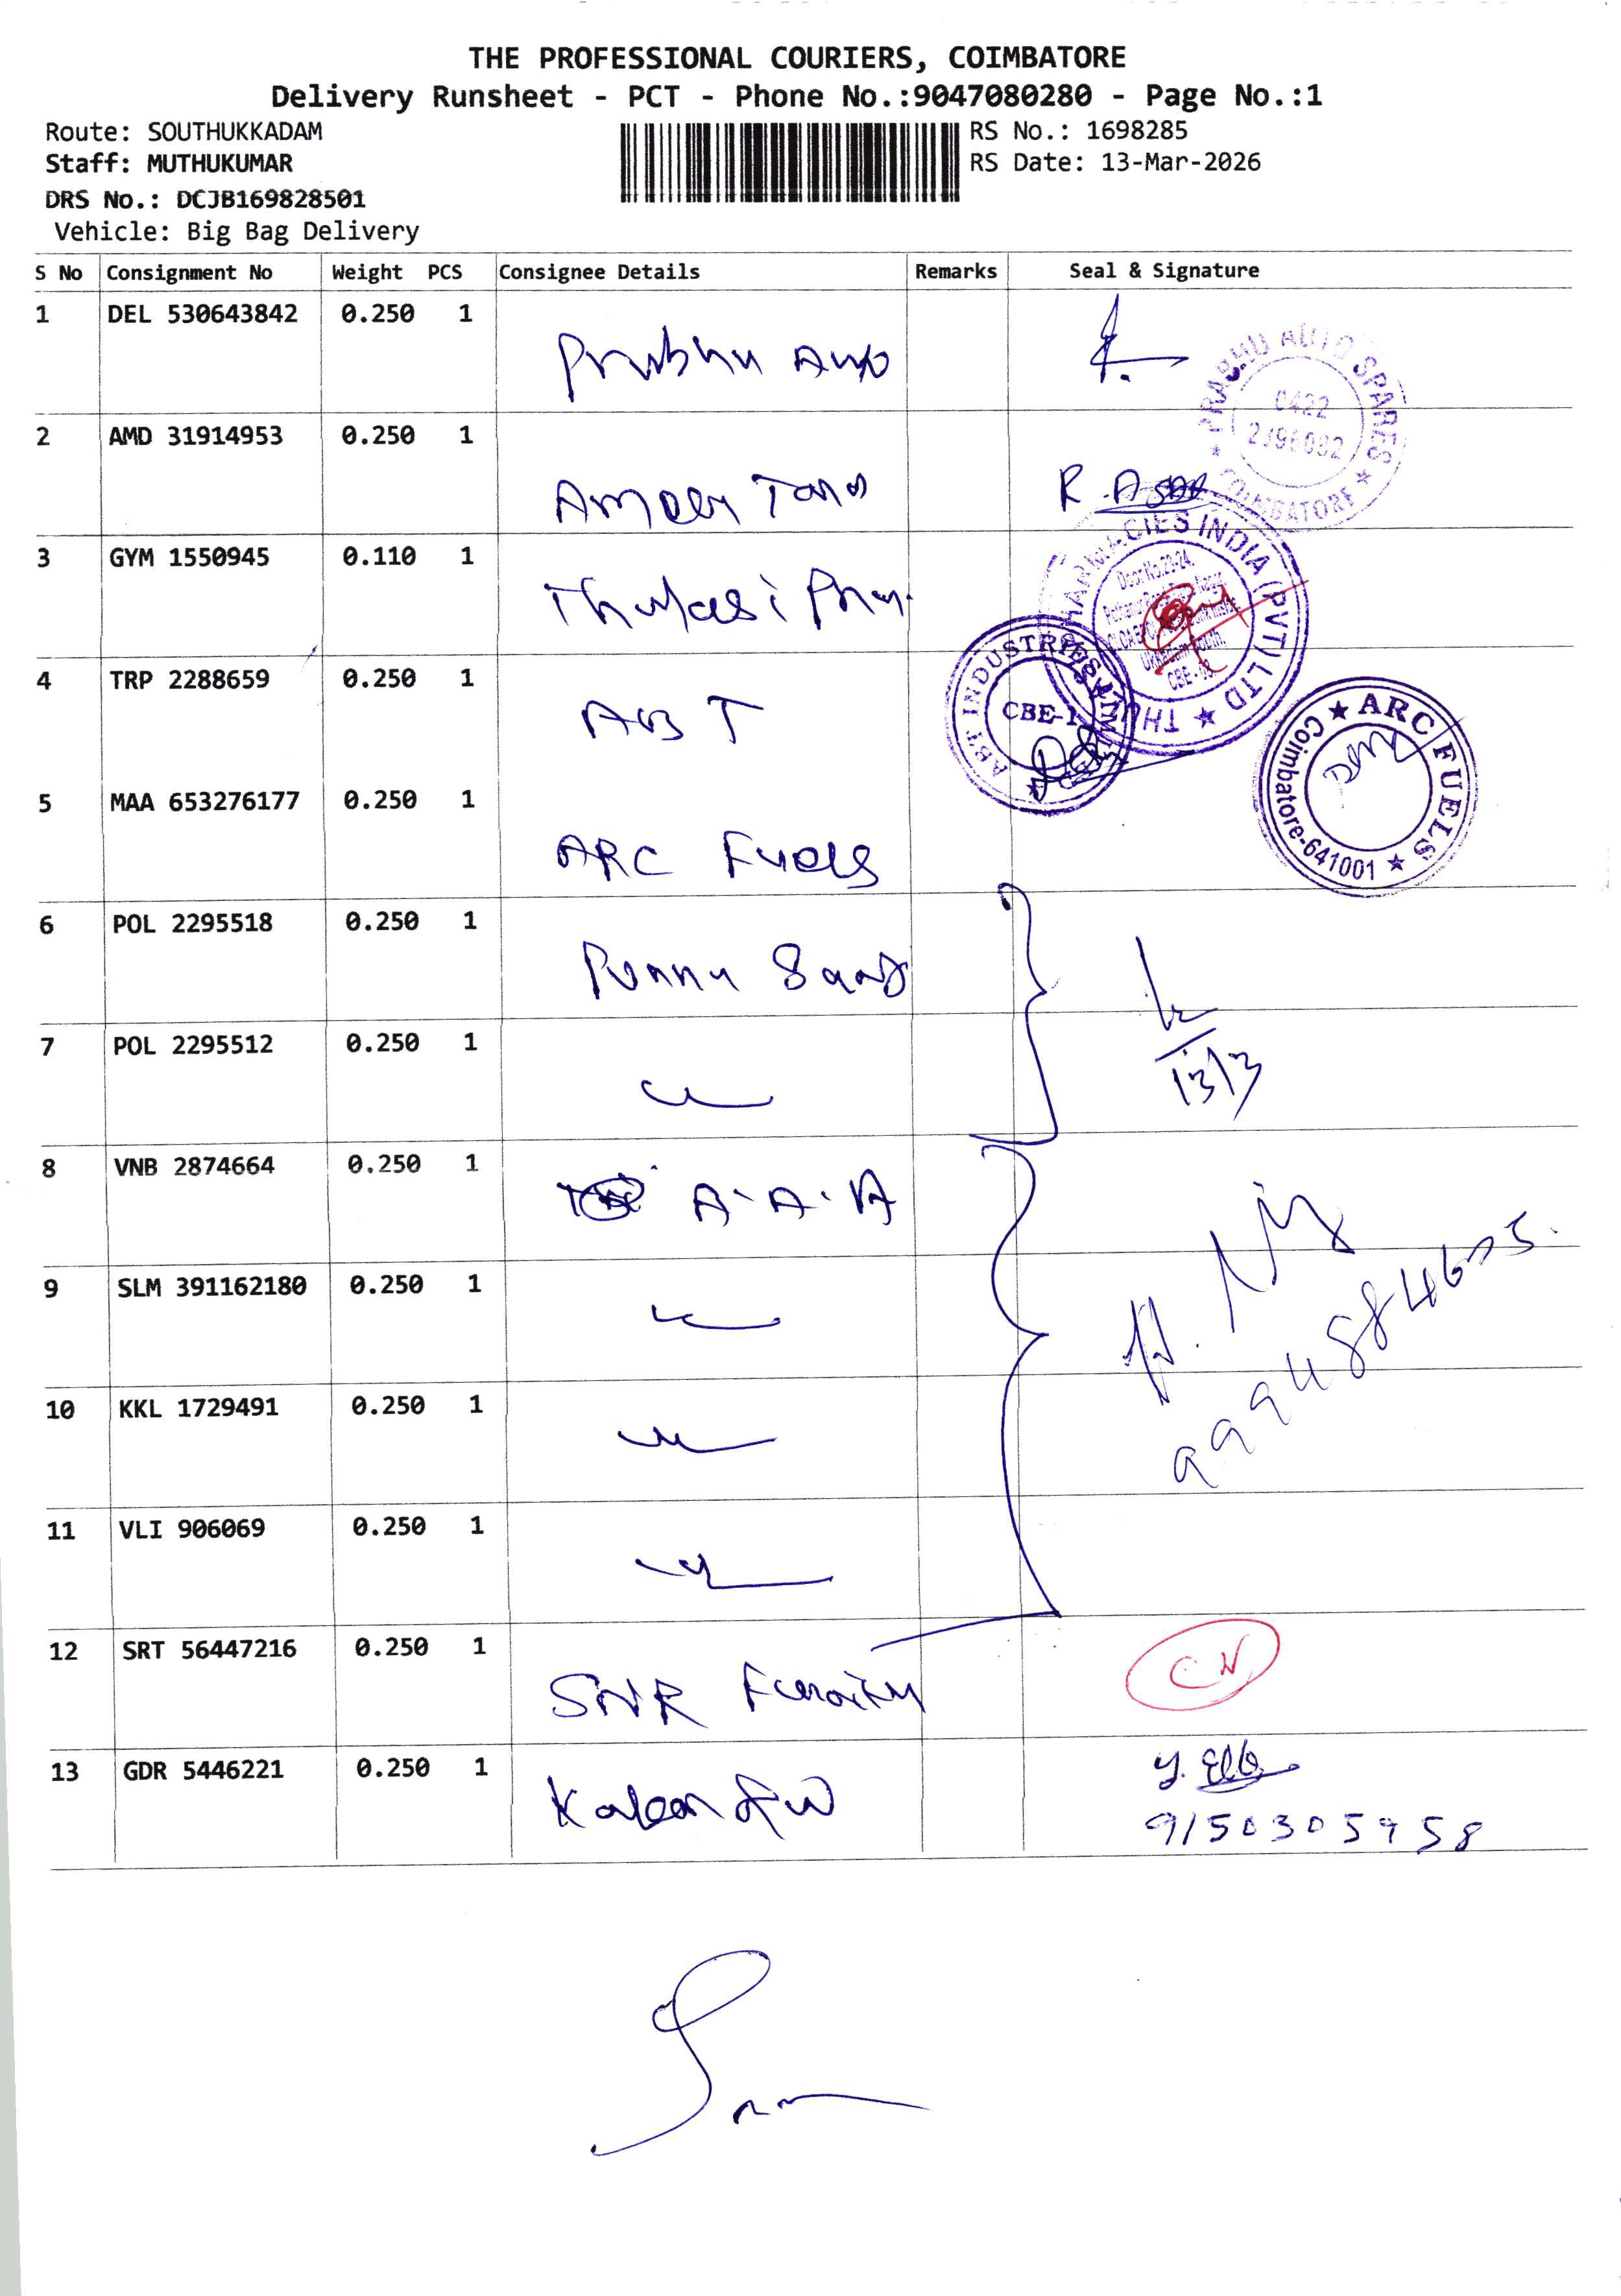 THE PROFESSIONAL COURIERS, COIMBATORE
Delivery Runsheet - PCT - Phone No.:9047080280 - Page No.:1
Route: SOUTHUKKADAM
RS No.: 1698285
Staff: MUTHUKUMAR
RS Date: 13-Mar-2026
DRS No.: DCJB169828501
Vehicle: Big Bag Delivery
S No Consignment No Weight PCS Consignee Details Remarks Seal & Signature
1 DEL 530643842 0.250 1
Prabhu Auto
PRABHU AUTO SPARES
0422
COIMBATORE
2 AMD 31914953 0.250 1
Ameer
R.
3 GYM 1550945 0.110 1
Thulasi Phar
PHARMACIES INDIA (PVT) LTD
Door No.22-24,
CBE
4 TRP 2288659 0.250 1
ABT
ABT INDUSTRIES LIMITED
CBE-1
5 MAA 653276177 0.250 1
ARC Fuels
ARC FUELS
Coimbatore-641001
6 POL 2295518 0.250 1
Ponnu
7 POL 2295512 0.250 1
13/3
8 VNB 2874664 0.250 1
A.A.A
9 SLM 391162180 0.250 1
10 KKL 1729491 0.250 1
11 VLI 906069 0.250 1
12 SRT 56447216 0.250 1
SNR
CN
13 GDR 5446221 0.250 1
9150305958